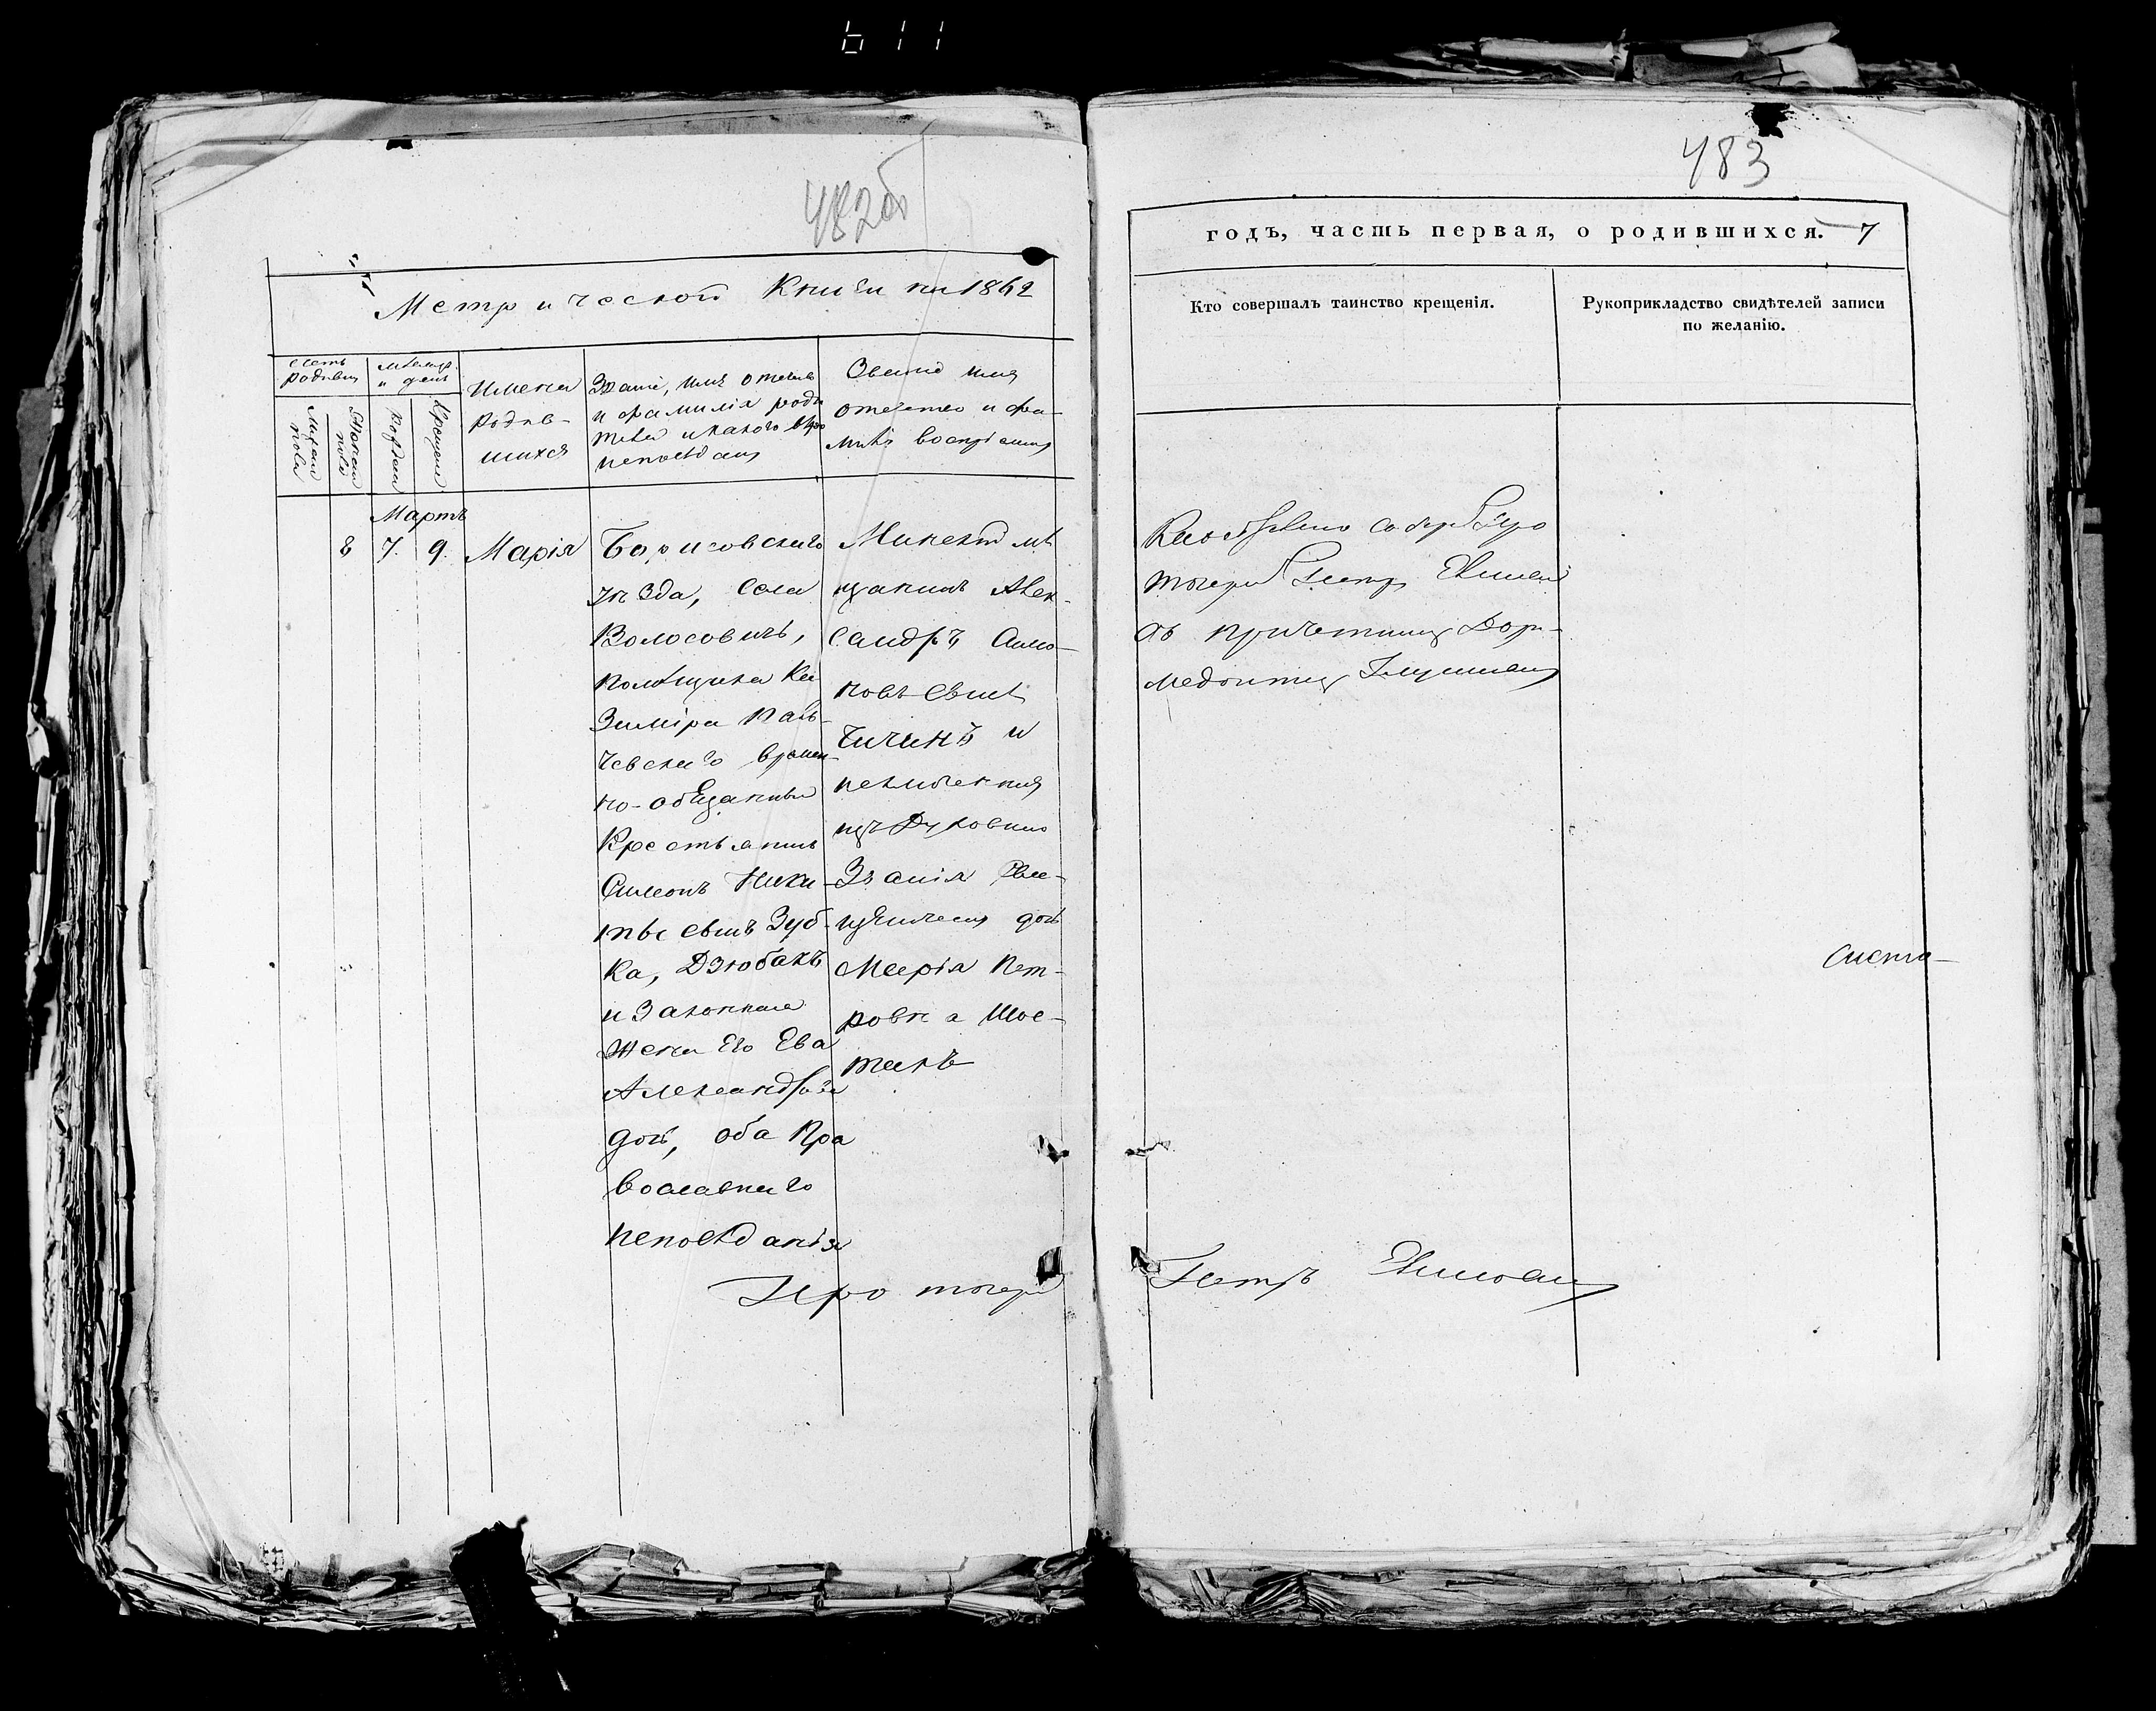 611
482об
Метрической Книги на 1862
счетъ родивш.
мѣсяцъ и день
Имена родив-
шихся
Званіе, имя отчест
и фамилія роди
телей и какого вѣро
исповѣданія
Званіе имя
отчество и фа-
милія воспріемни
Мужеска пола
Женска пола
Рожденія
Крещенія
Мартъ
8 7. 9. Марія
Борисовскаго
уѣзда, села
Волосовичъ,
помѣщика Ка
зиміра
чевскаго времен-
но-обязанный
Крестьянинъ
Симонъ Ники-
тьевичъ Зуб-
ка, Дзюбакъ
и Законная
жена его Ева
Александрова
дочь, оба Пра
вославнаго
исповѣданія
Минскій мѣ
щанинъ Алек-
сандръ Симо-
новъ
и
изъ Духовнаго
Званія Свя-
щенническ дочь
Марія Пет-
ровна Шос-
такъ
Прото
483
годъ, часть первая, о родившихся. 7
Кто совершалъ таинство крещенія.
Рукоприкладство свидѣтелей записи
по желанію.
Петръ
съ причетник Дори-
медонтом
Петръ